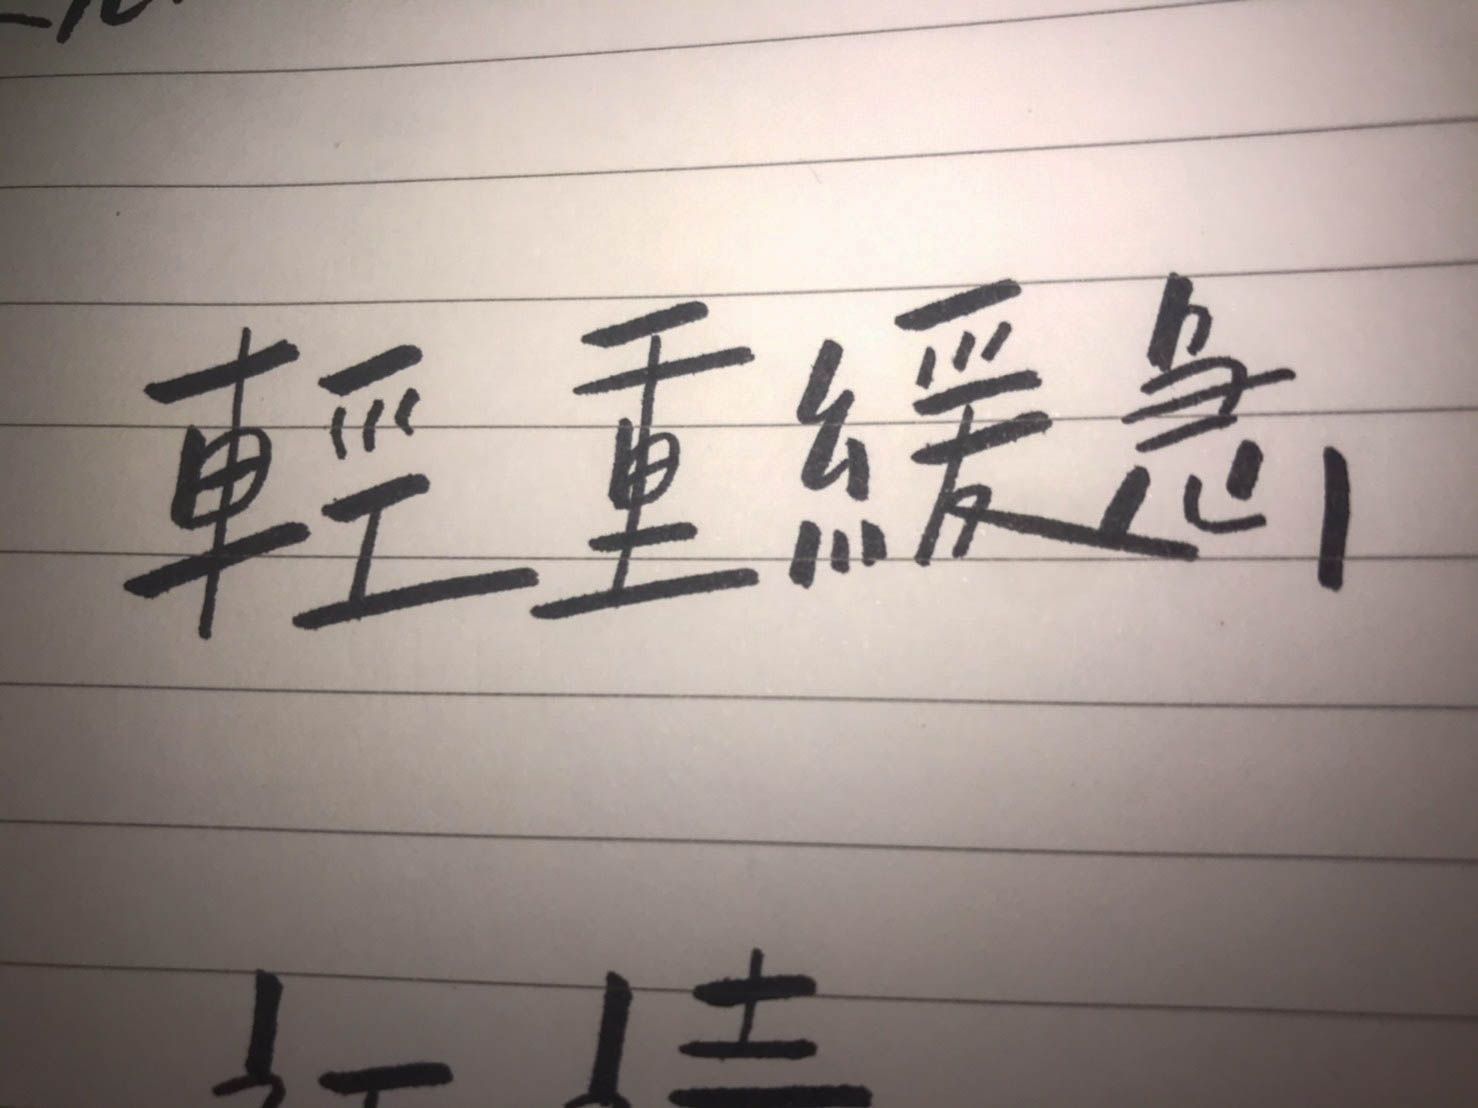 輕重緩急